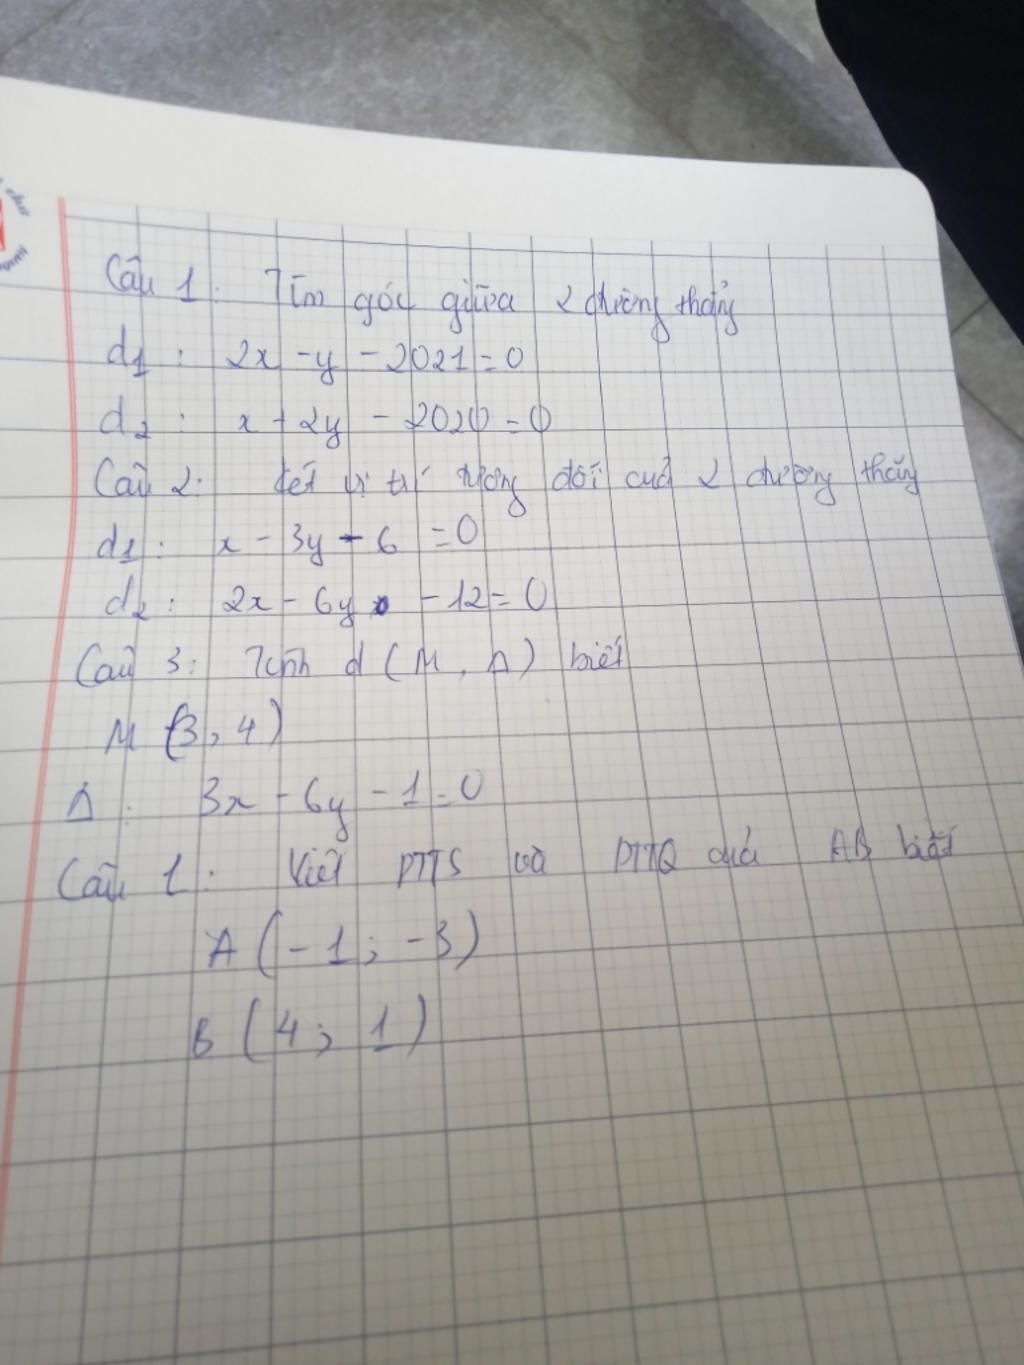 Câu 1: Tìm góc giữa 2 đường thẳng
d1 : 2x - y - 2021 = 0
d2 : x + 2y - 2020 = 0
Câu 2: Xét vị trí tương đối của 2 đường thẳng
d1 : x - 3y - 6 = 0
d2 : 2x - 6y - 12 = 0
Câu 3: Tính d (M, Δ) biết
M (3, 4)
Δ : 3x - 6y - 1 = 0
Câu 1: Viết PTTS và PTTQ của AB biết
A (-1; -3)
B (4; 1)